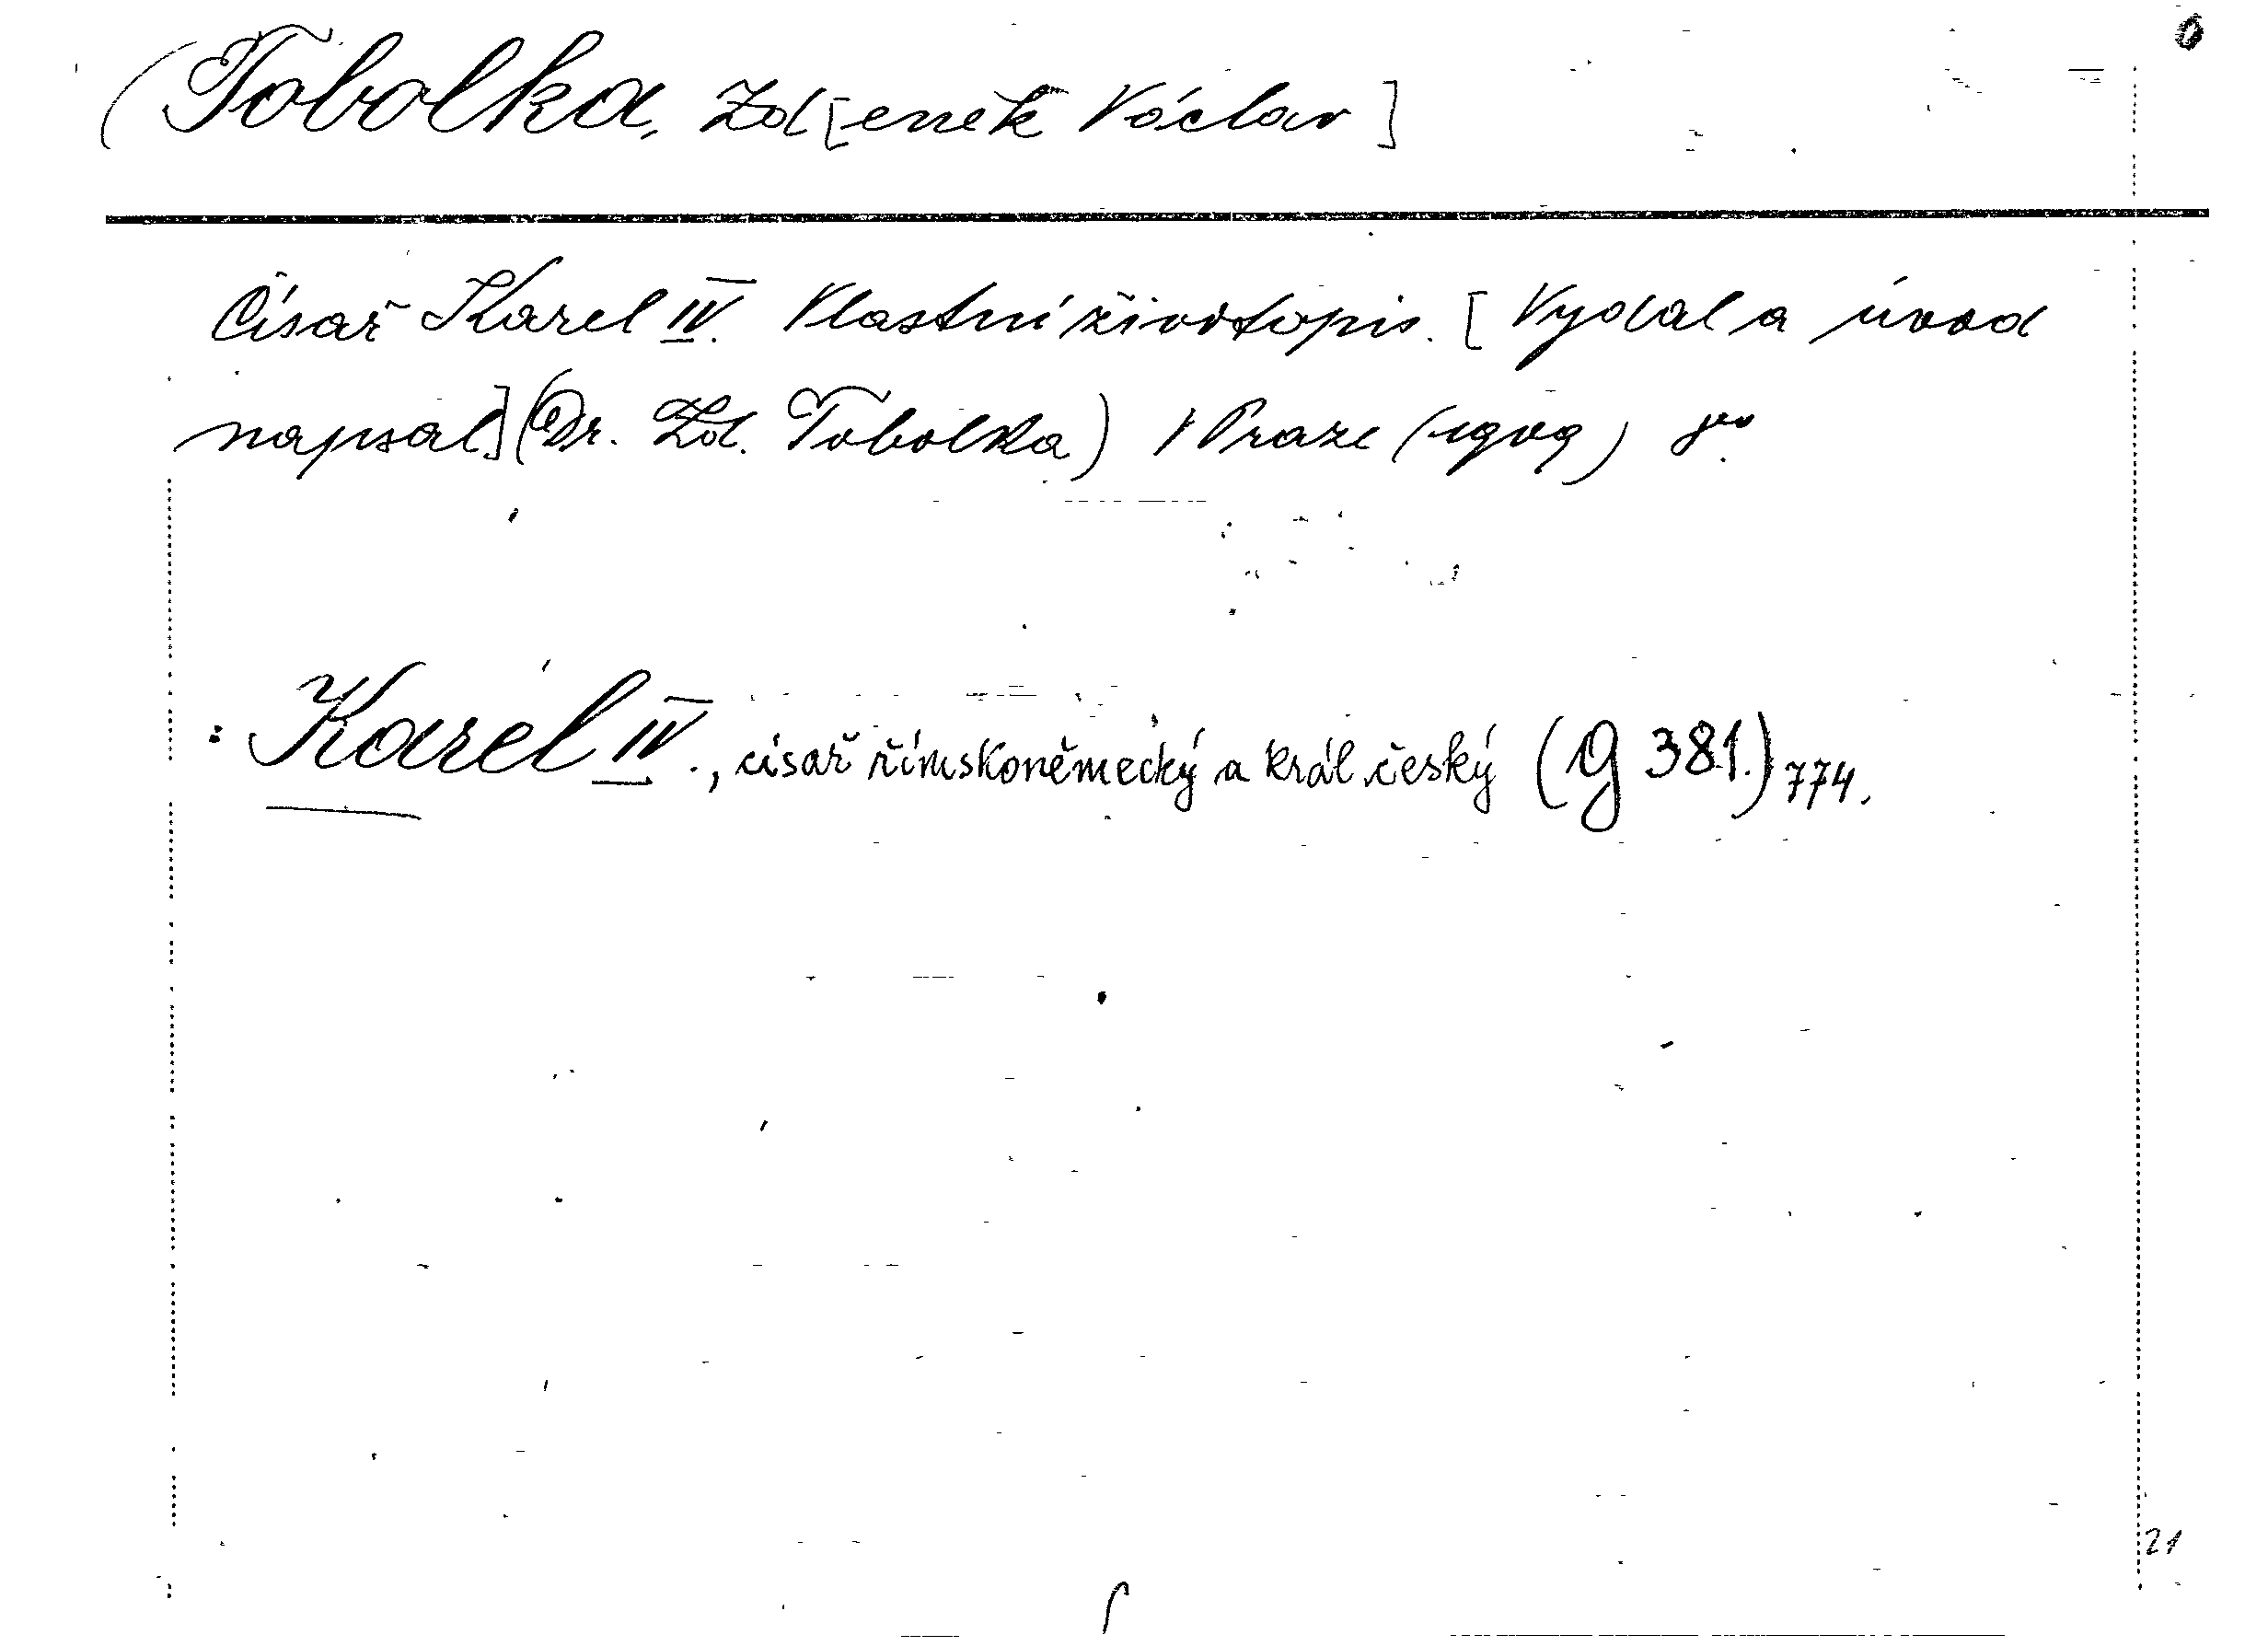 (Tobolka, Zd[eněk Václav]
Císař Karel IV. Vlastní životopis. [Vydal a úvod
napsal] (Dr. Zd. Tobolka) V Praze (1909) 8°.
: Karel IV., císař římskoněmecký a král český (g 381.) 774.
21